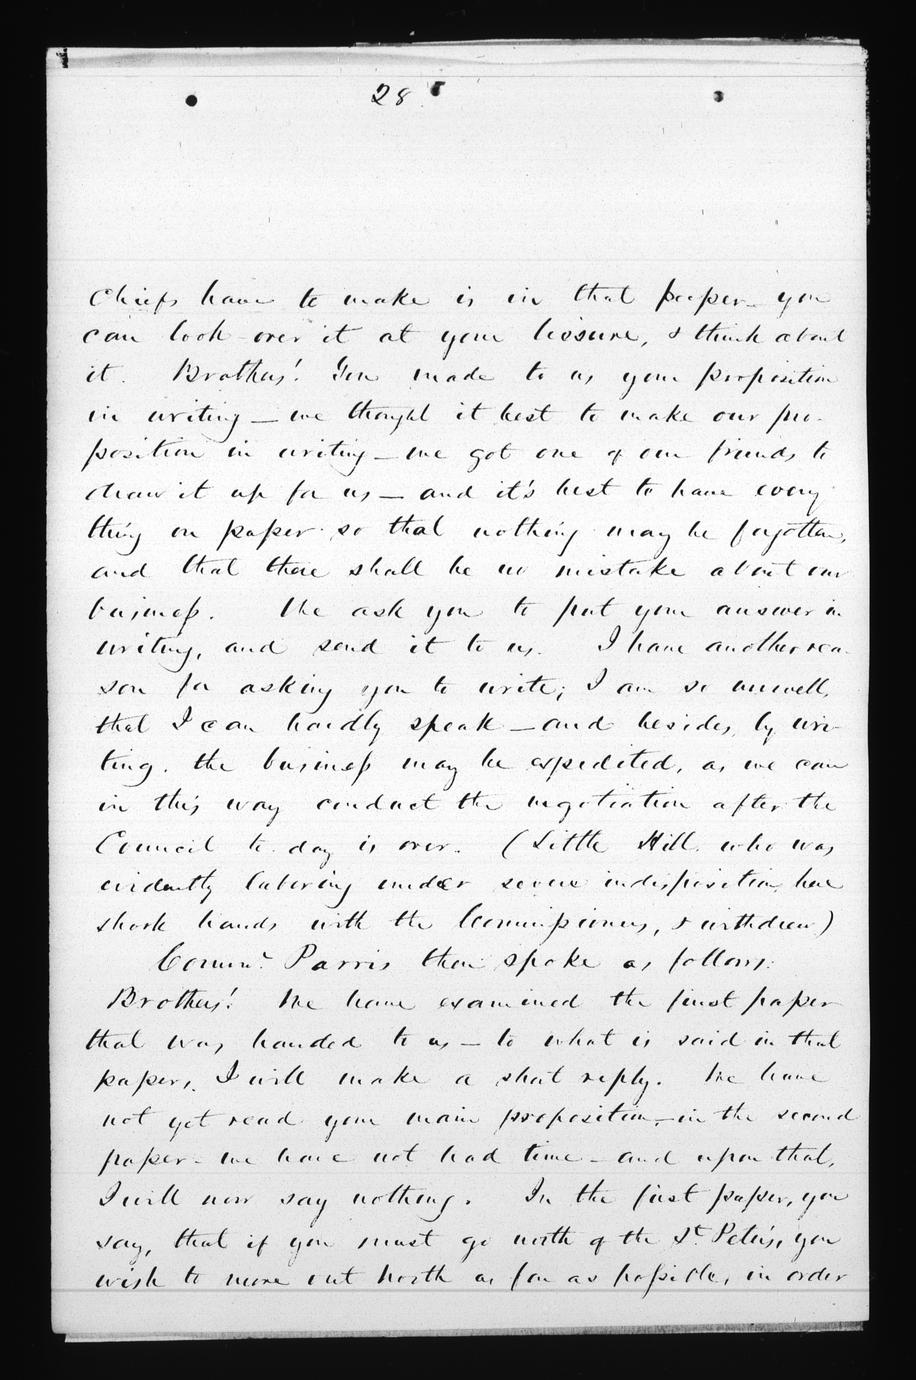 28
Chiefs have to make is in that paper - you
can look over it at your liesure, & think about
it. Brothers! You made to us your proposition
in writing - we thought it best to make our pro-
position in writing - we got one of our friends to
draw it up for us - and it's best to have every
thing on paper so that nothing may be forgotten,
and that there shall be no mistake about our
business. We ask you to put your answer in
writing, and send it to us. I have another rea-
son for asking you to write; I am so unwell,
that I can hardly speak - and besides, by wri-
ting, the business may be expedited, as we can
in this way conduct the negotiation after the
Council to-day is over. (Little Hill, who was
evidently laboring under severe indisposition, here
shook hands with the Commissioners, & withdrew)
Commr. Parris then spoke as follows:
Brothers! We have examined the first paper
that was handed to us - to what is said in that
paper, I will make a short reply. We have
not yet read your main proposition - in the second
paper - we have not had time - and upon that,
I will now say nothing. In the first paper, you
say, that if you must go north of the St. Peters, you
wish to move out north as far as possible, in order